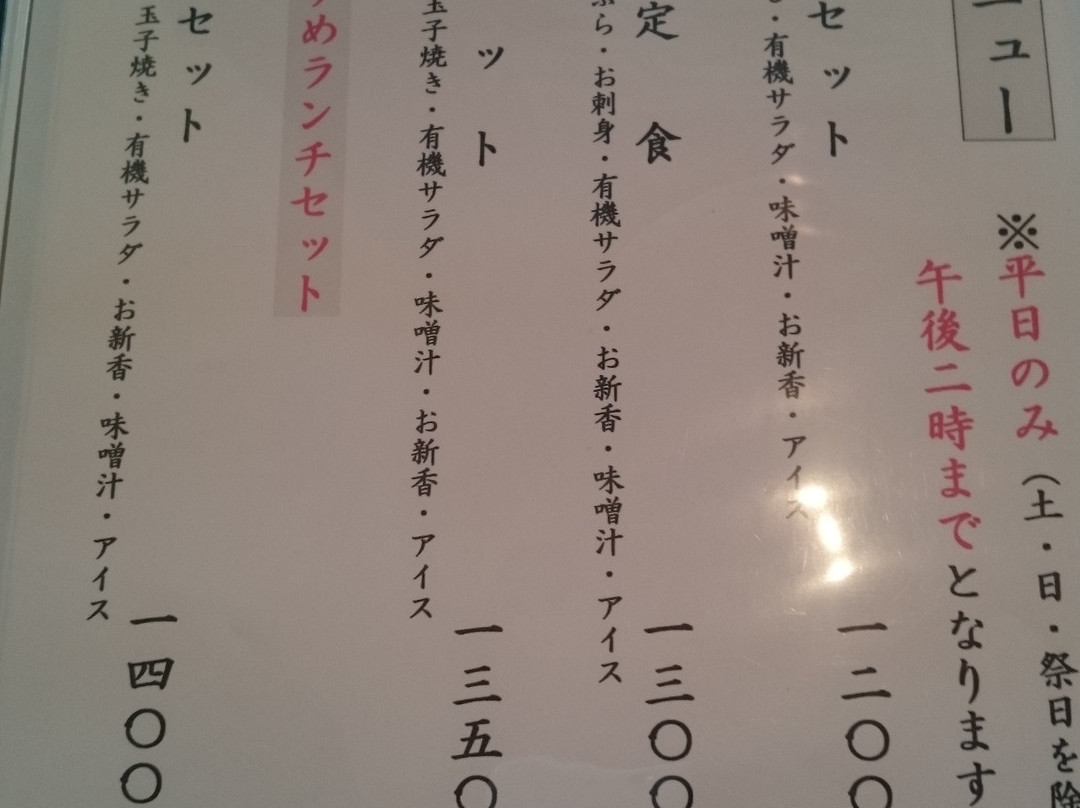 ニュー
※平日のみ（土・日・祭日を除
午後二時までとなります
セット
・有機サラダ・味噌汁・お新香・アイス
一二〇〇
定食
ぷら・お刺身・有機サラダ・お新香・味噌汁・アイス
一三〇〇
ット
玉子焼き・有機サラダ・味噌汁・お新香・アイス
一三五〇
めランチセット
セット
玉子焼き・有機サラダ・お新香・味噌汁・アイス
一四〇〇